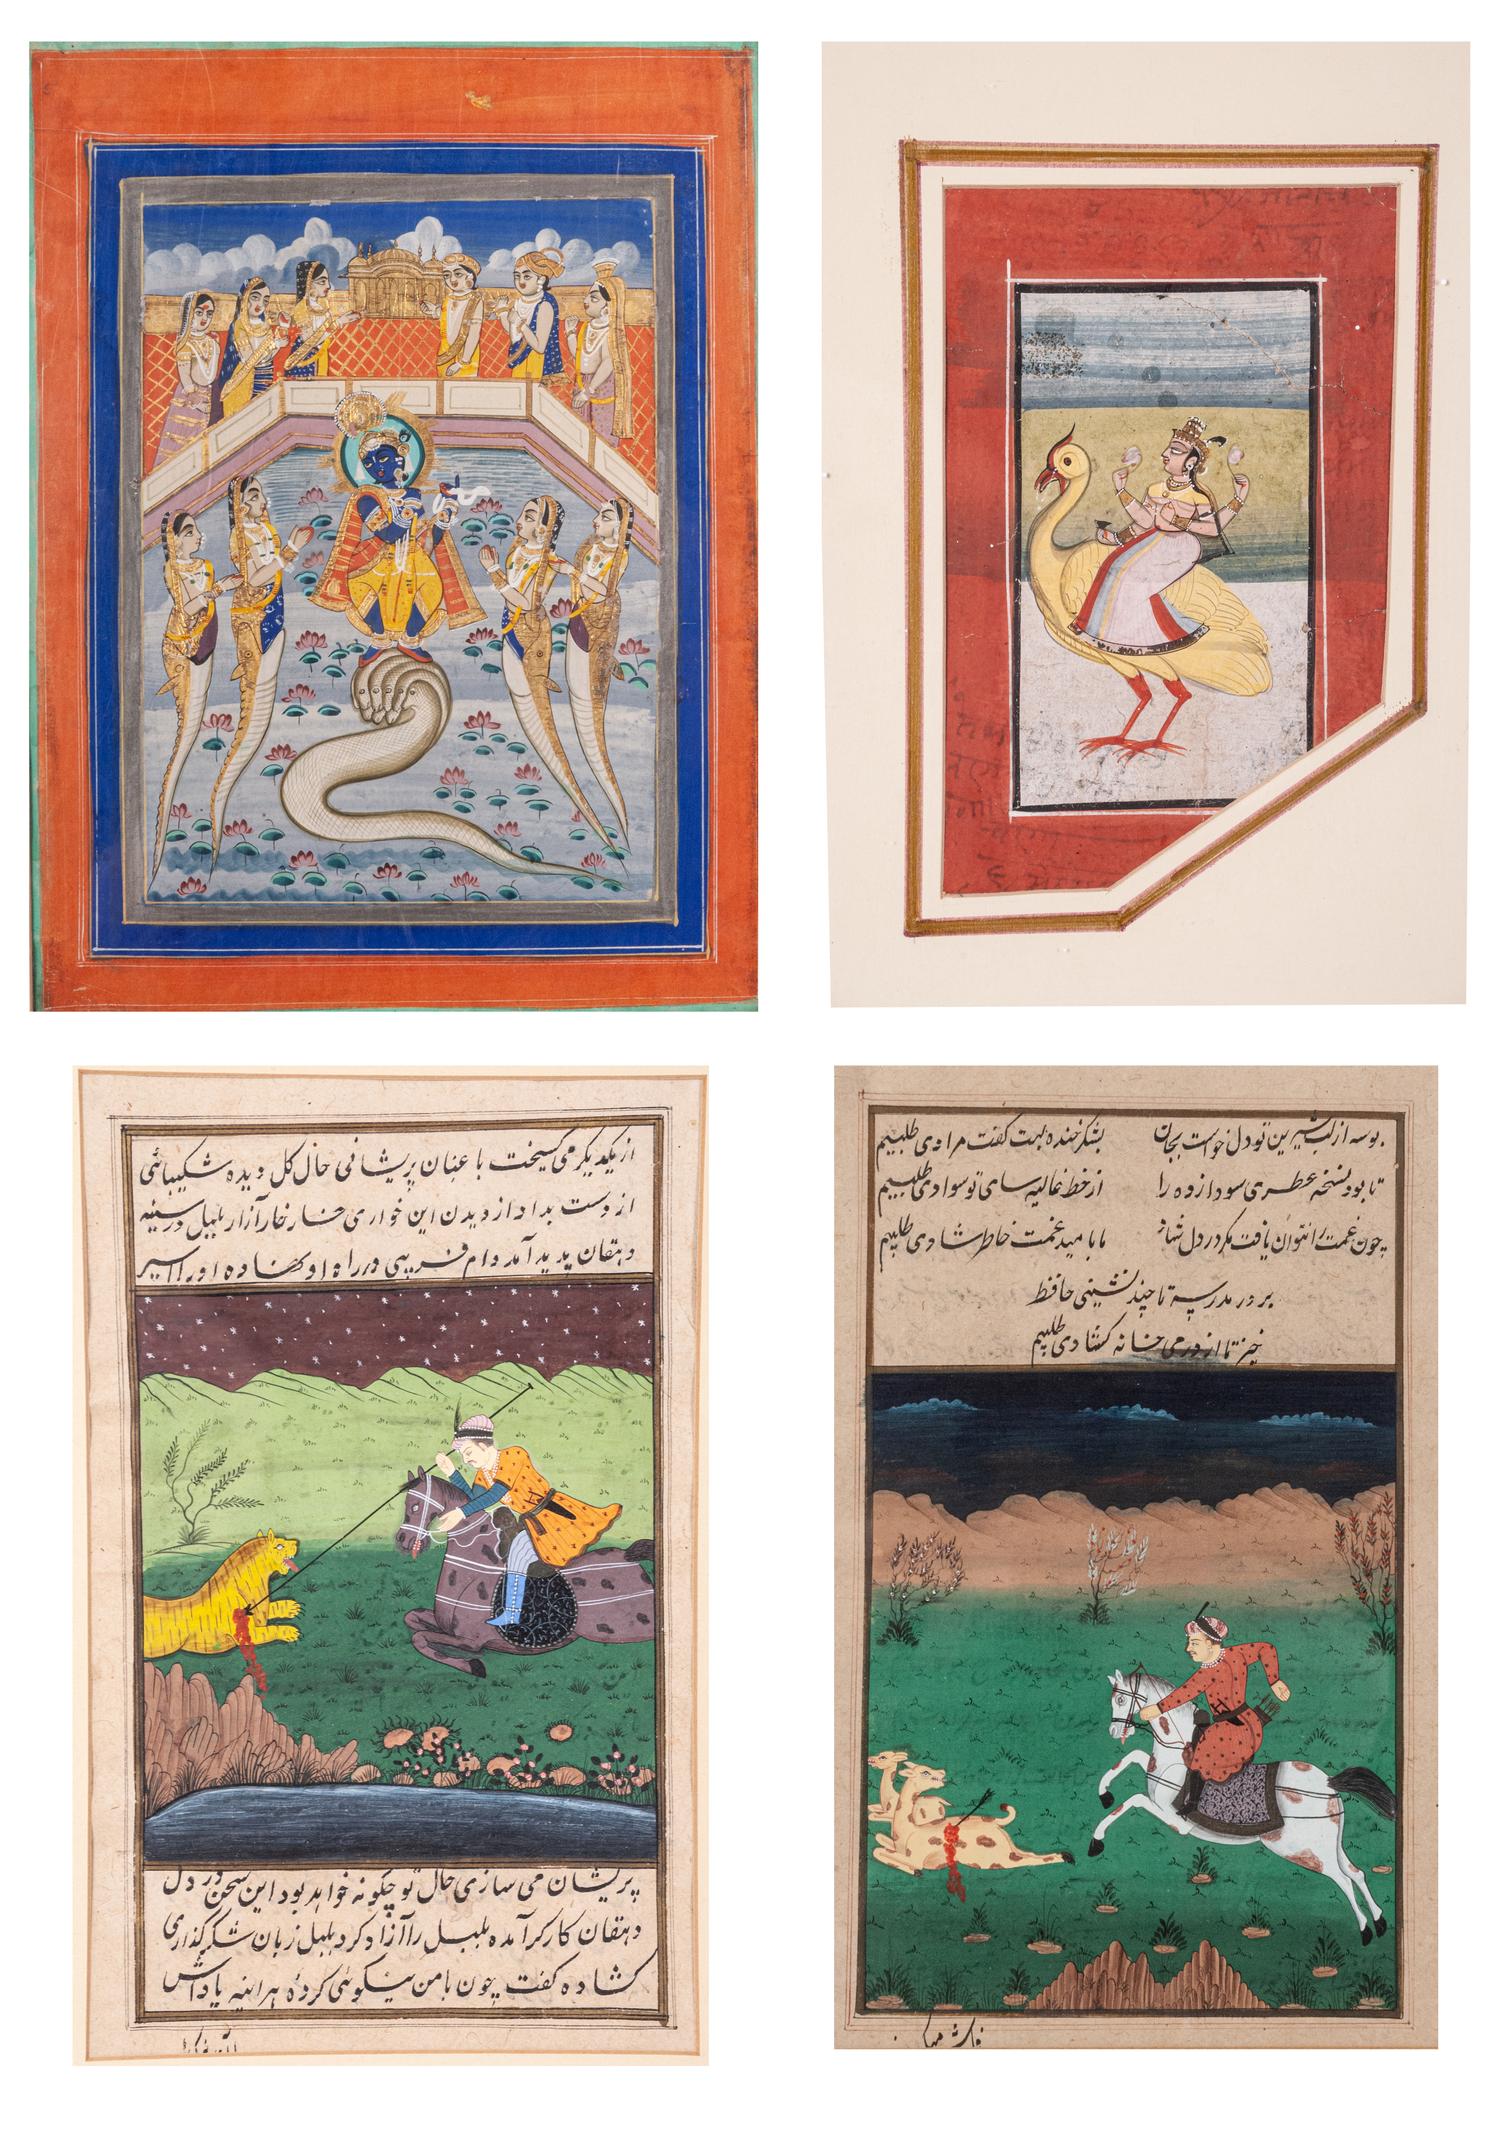 از یکدیگر می گسیخت با عنان پریشانی حال گل دیده شکیبائی
از دست بداد از دیدن این خواری خار خار آزار بلبل در سینه
دهقان پدید آمد دام فریبی در راه او نهاده او را اسیر
پریشان می سازی حال تو چگونه خواهد بود این سخن در دل
دهقان کارگر آمده بلبل را آزاد کرد بلبل زبان شکرگذاری
کشاده گفت چون با من نیکوئی کردۀ هرآینه پاداش
بوسه از لب شیرین تو دل خواست بجان
بشکر خنده لبت گفت مرادی طلبیم
تا بود نسخه عطری سودا زده را
از خط غالیه سای تو سوادی طلبیم
چون غمت را نتوان یافت مگر در دل شاد
ما بامید غمت خاطر شادی طلبیم
بر در مدرسه تا چند نشینی حافظ
خیز تا از در می خانه کشادی طلبیم